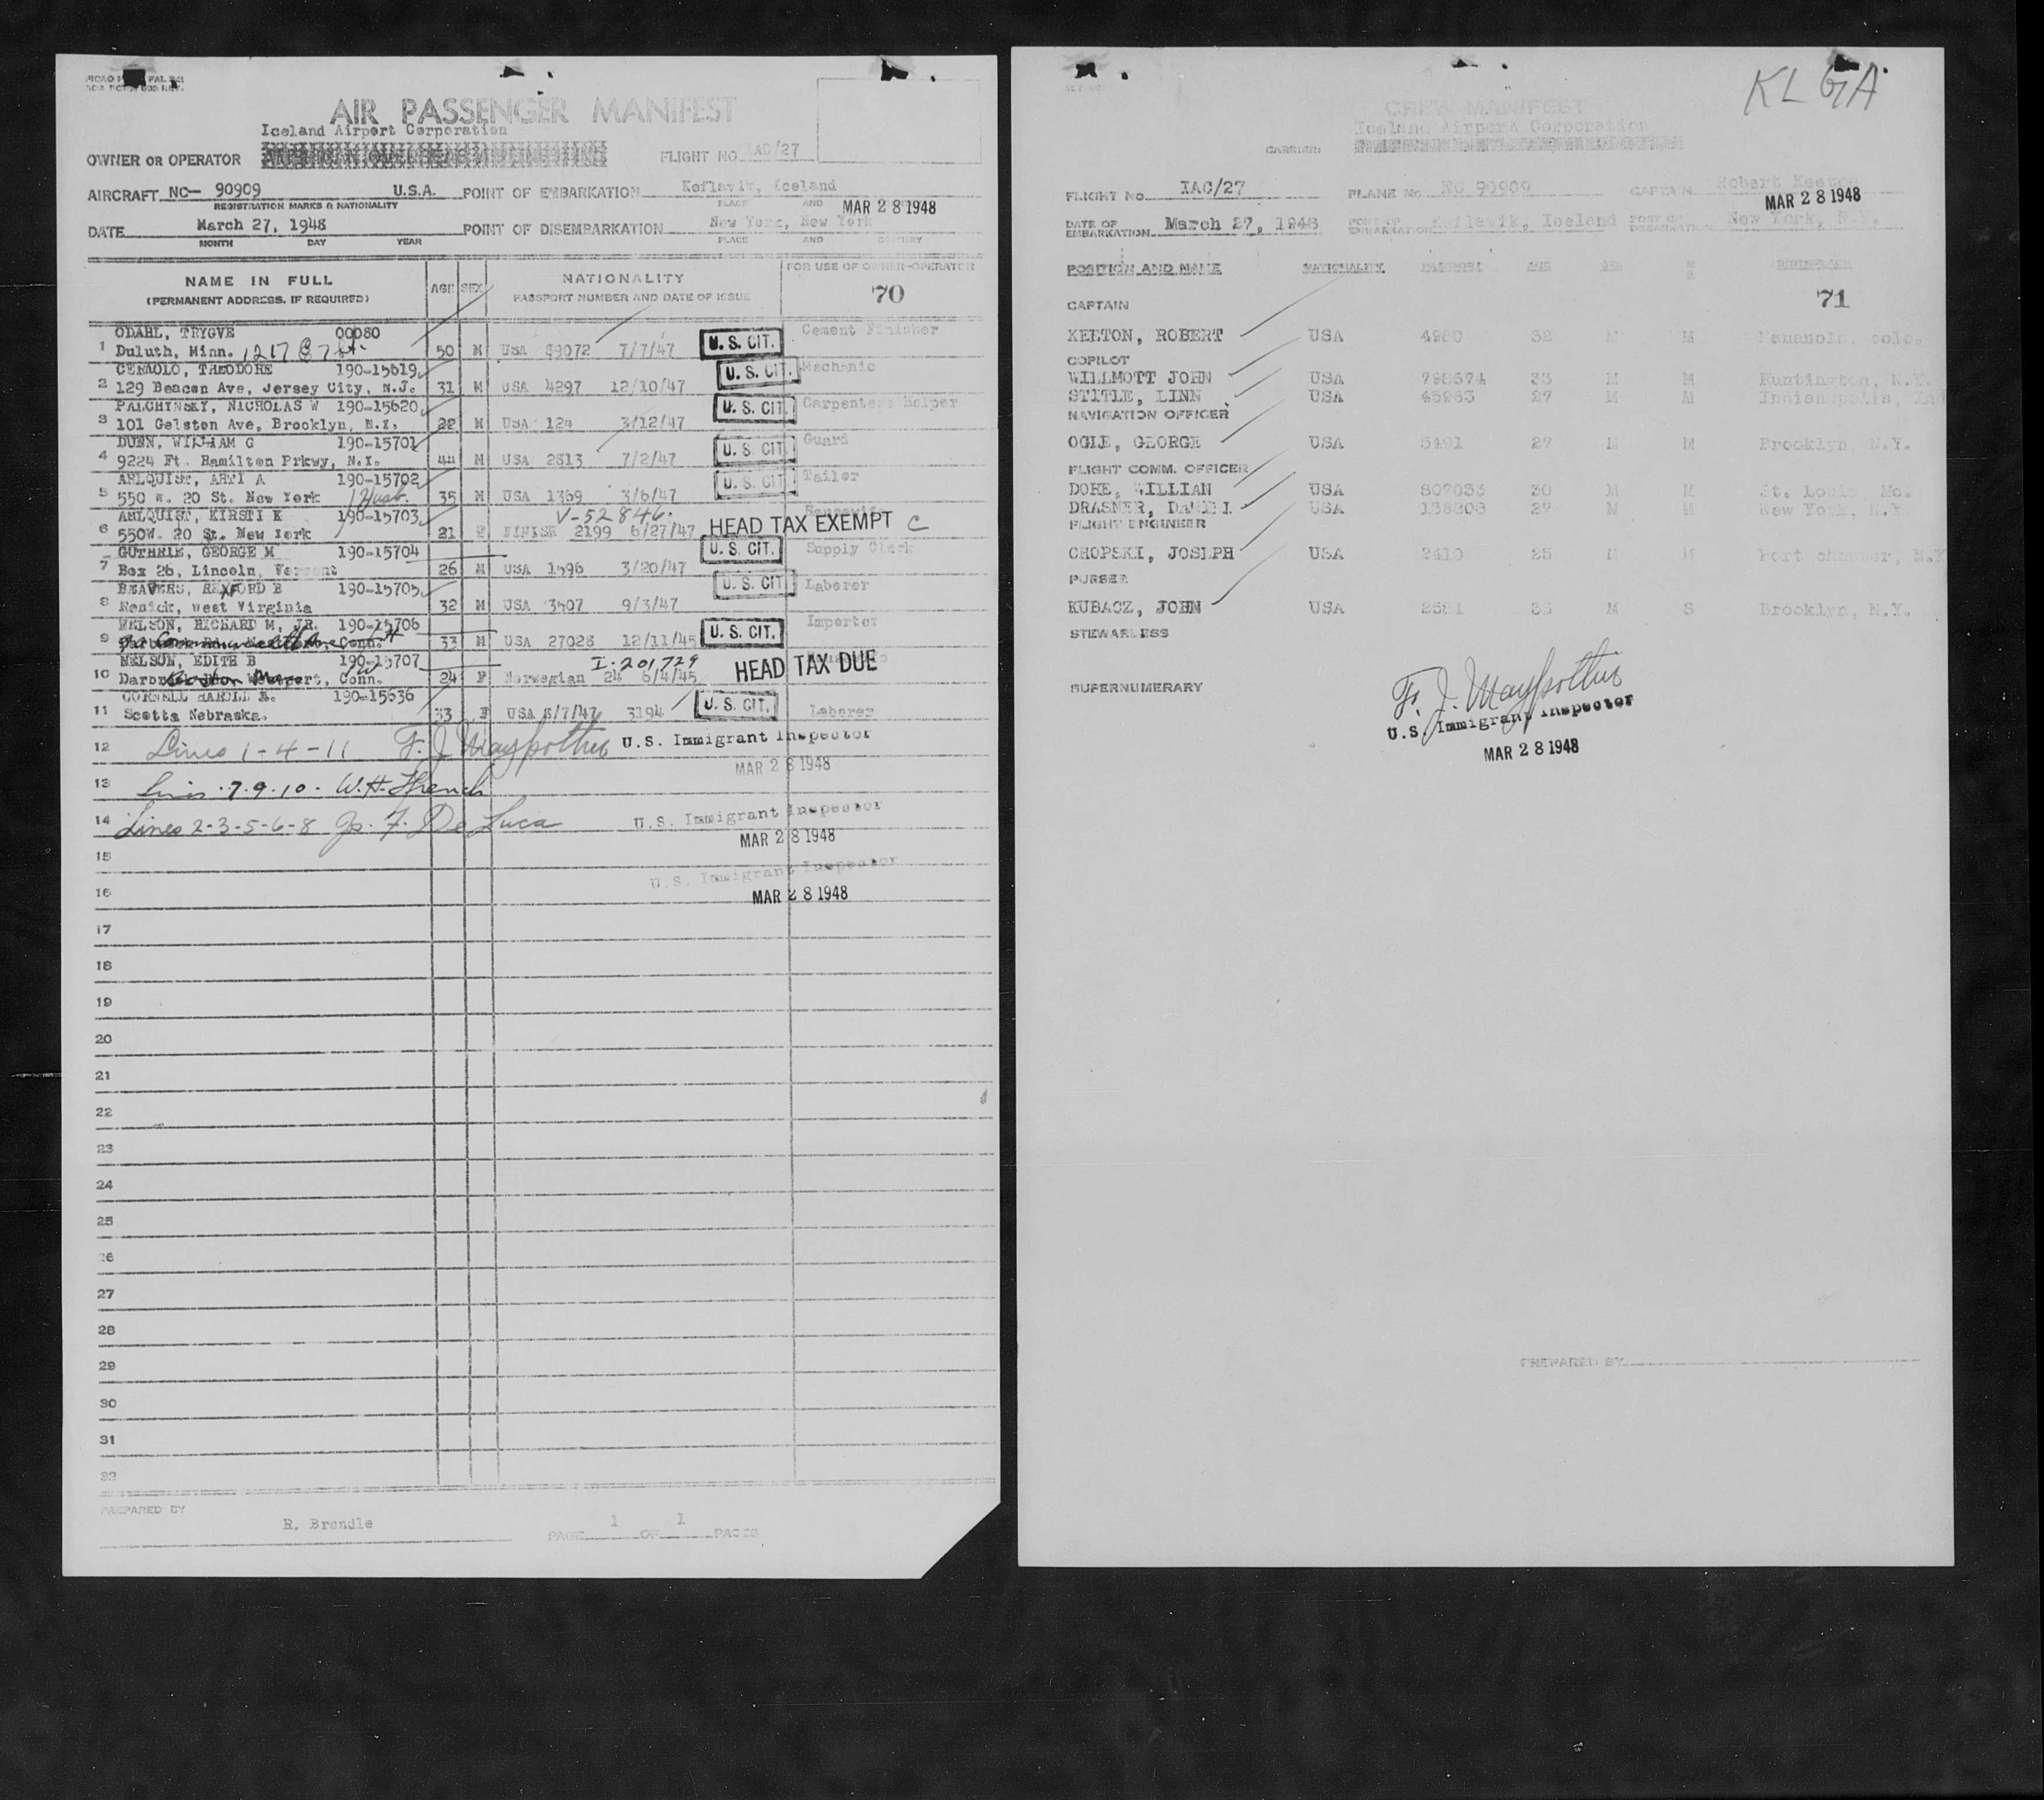 AIR PASSENGER MANIFEST
Iceland Airport Corporation
OWNER OR OPERATOR FLIGHT NO. IAC/27
AIRCRAFT NC- 90909 U.S.A. POINT OF EMBARKATION Keflavik, Iceland
REGISTRATION MARKS & NATIONALITY PLACE AND MAR 28 1948
DATE March 27, 1948 POINT OF DISEMBARKATION New York, New York
MONTH DAY YEAR PLACE AND COUNTRY
NAME IN FULL AGE SEX NATIONALITY FOR USE OF OWNER-OPERATOR
(PERMANENT ADDRESS, IF REQUIRED) PASSPORT NUMBER AND DATE OF ISSUE 70
ODAHL, TRYGVE 00080 Cement Finisher
1 Duluth, Minn. 50 M USA 39072 7/7/47 U. S. CIT.
CERAOLO, THEODORE 190-15619 Mechanic
2 129 Beacon Ave, Jersey City, N.J. 31 M USA 4297 12/10/47 U. S. CIT.
PALCHYNSKY, NICHOLAS W 190-15620 Carpenters Helper
3 101 Gelston Ave, Brooklyn, N.Y. 22 M USA 124 3/12/47 U. S. CIT.
DUNN, WILLIAM G 190-15701 Guard
4 9224 Ft. Hamilton Prkwy, N.Y. 44 M USA 2813 7/2/47 U. S. CIT.
AHLQUIST, ARTI A 190-15702 Tailer
5 550 W. 20 St. New York Husb. 35 M USA 1369 3/6/47 U. S. CIT.
AHLQUIST, KIRSTI K 190-15703 V-52846. Housewife
6 550W. 20 St. New York 21 F FINISH 2199 6/27/47 HEAD TAX EXEMPT C
GUTHRIE, GEORGE M 190-15704 Supply Clerk
7 Box 26, Lincoln, Vermont 26 M USA 1596 3/20/47 U. S. CIT.
BEAVERS, REXFORD B 190-15705 Laborer
8 Renick, West Virginia 32 M USA 3507 9/3/47 U. S. CIT.
NELSON, RICHARD M, JR. 190-15706 Importer
9 Conn. 33 M USA 27028 12/11/45 U. S. CIT.
NELSON, EDITH B 190-15707 I-201729
10 Conn. 24 F Norwegian 24 6/4/45 HEAD TAX DUE
CORNELL HAROLD E. 190-15636
11 Scotts Nebraska. 33 F USA 5/7/47 3194 U. S. CIT. Laborer
12 Lines 1-4-11 U.S. Immigrant Inspector
MAR 28 1948
13 Lines 7.9.10. W.H. French
14 Lines 2-3-5-6-8 Jo. F. De Luca U.S. Immigrant Inspector
MAR 28 1948
15
U.S. Immigrant Inspector
16
MAR 28 1948
17
18
19
20
21
22
23
24
25
26
27
28
29
30
31
32
PREPARED BY
R. Brendle PAGE 1 OF 1 PAGES
KLGA
CREW MANIFEST
Iceland Airport Corporation
CARRIER:
FLIGHT No. IAC/27 PLANE No. NC 90909 CAPTAIN Robert Keeton
MAR 28 1948
DATE OF EMBARKATION March 27, 1948 PORT OF EMBARKATION Keflavik, Iceland PORT OF DEBARKATION New York, N.Y.
POSITION AND NAME NATIONALITY PASSPORT AGE SEX M S BIRTHPLACE
CAPTAIN 71
KEETON, ROBERT USA 4980 32 M M
COPILOT
WILLMOTT JOHN USA 798674 33 M M Huntington, N.Y.
STITLE, LINN USA 45963 27 M M Indianapolis, Ind
NAVIGATION OFFICER
OGLE, GEORGE USA 5491 27 M M Brooklyn N.Y.
FLIGHT COMM. OFFICER
DORE, WILLIAN USA 807033 30 M M St. Louis Mo.
DRASNER, DANIEL USA 138808 27 M M New York, N.Y.
FLIGHT ENGINEER
CHOPSKI, JOSEPH USA 2410 25 M M Port Chester, N.Y.
PURSER
KUBACZ, JOHN USA 2581 35 M S Brooklyn, N.Y.
STEWARDESS
SUPERNUMERARY
U.S. Immigrant Inspector
MAR 28 1948
PREPARED BY